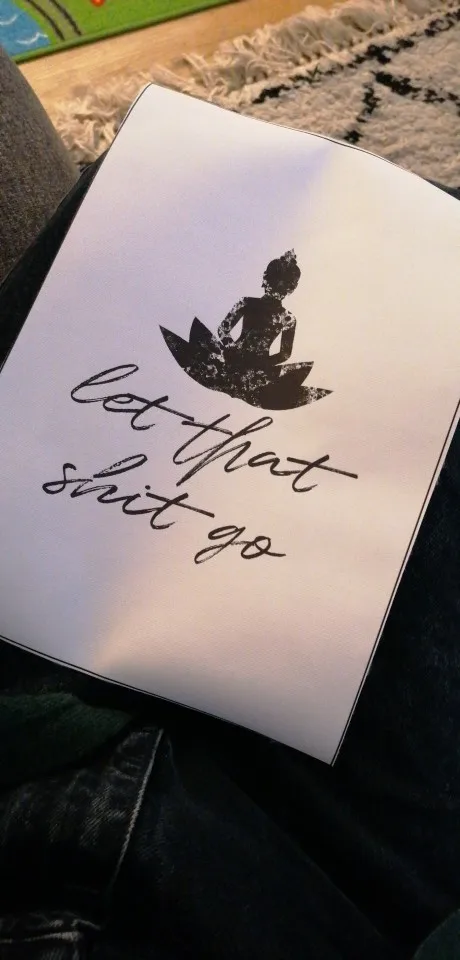 let that
shit go